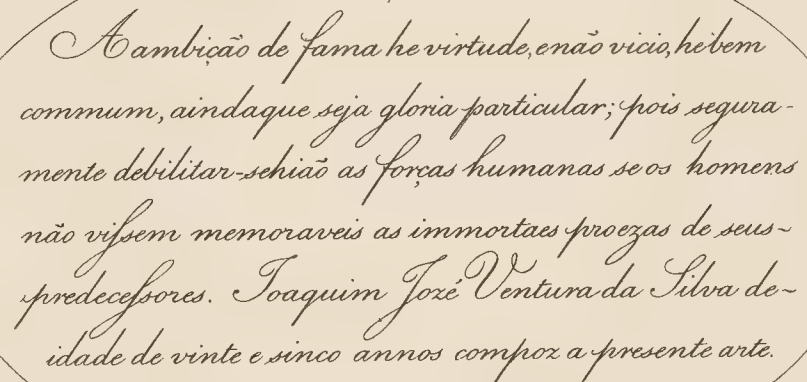 A ambição de fama he virtude, e não vicio, he bem
commum, ainda que seja gloria particular; pois segura-
mente debilitar-sehião as forças humanas se os homens
não viſsem memoraveis as immortaes proezas de seus-
predeceſsores. Joaquim Jozé Ventura da Silva de-
idade de vinte e sinco annos compoz a presente arte.